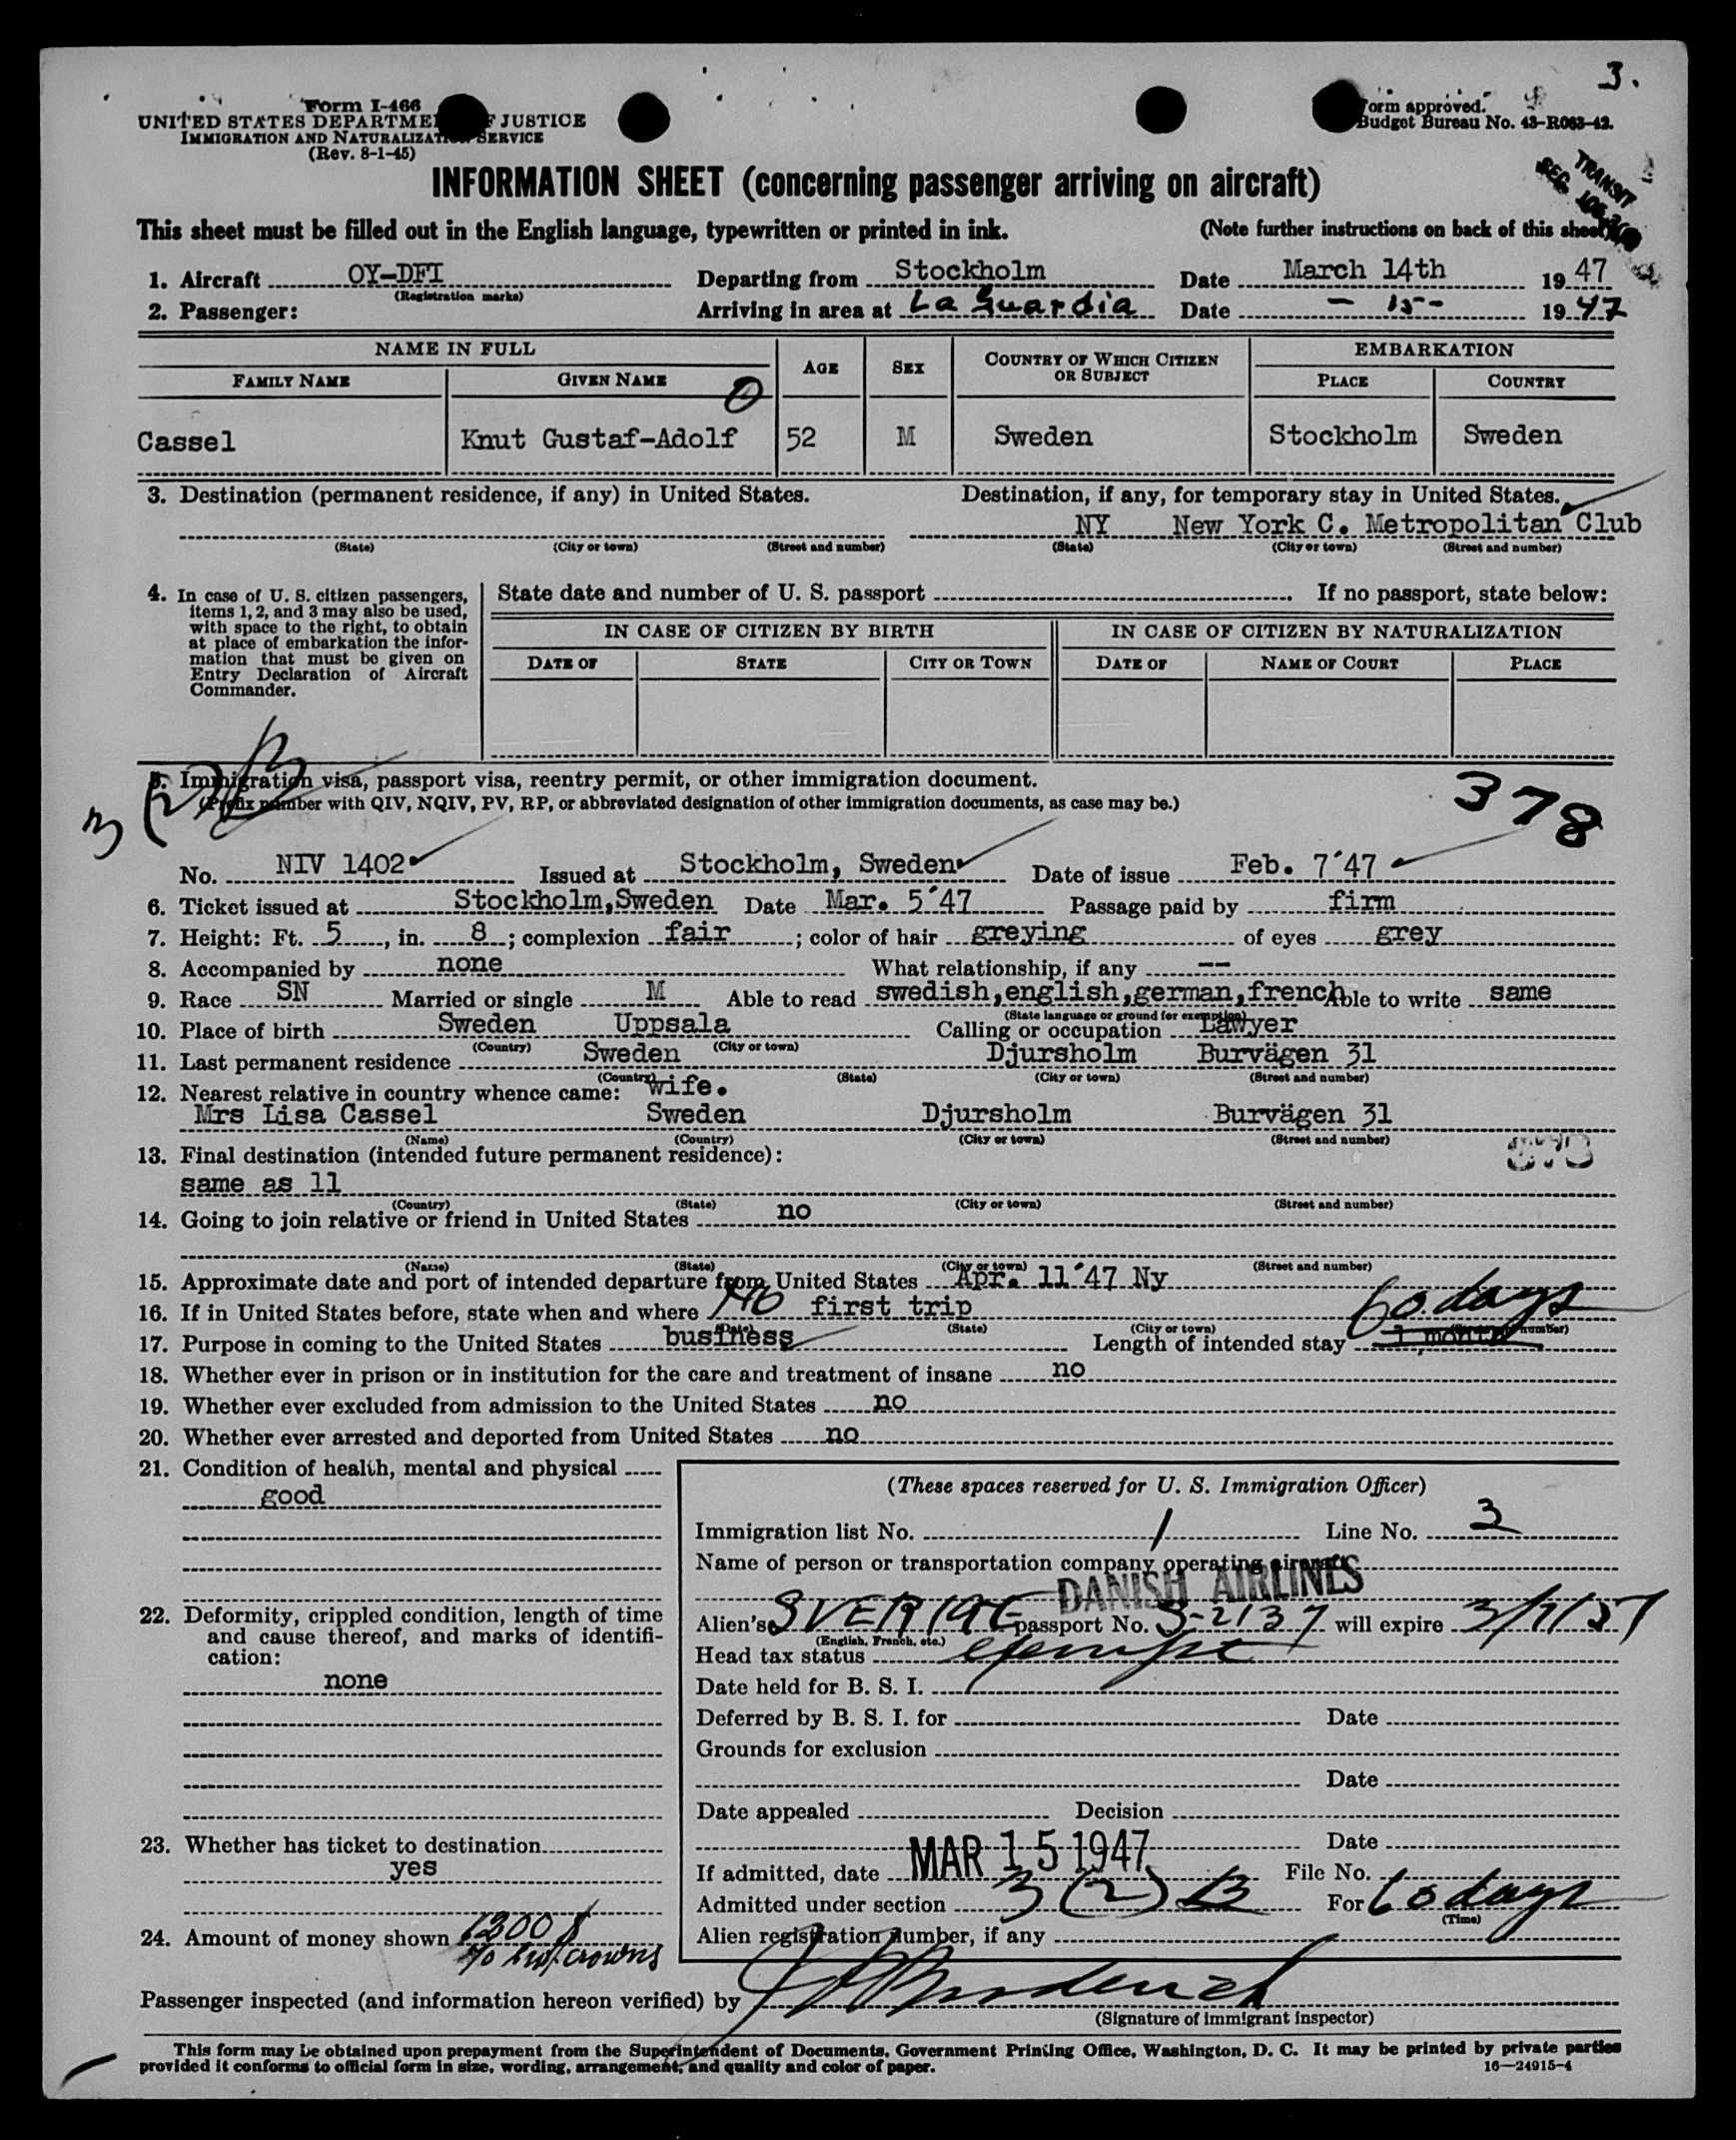 3.
Form I-466
UNITED STATES DEPARTME F JUSTICE
IMMIGRATION AND NATURALIZATI SERVICE
(Rev. 8-1-45)
orm approved.
Budget Bureau No. 43-R063-42.
TRANSIT
SEC.
INFORMATION SHEET (concerning passenger arriving on aircraft)
This sheet must be filled out in the English language, typewritten or printed in ink. (Note further instructions on back of this sheet
1. Aircraft OY-DFI Departing from Stockholm Date March 14th 1947
(Registration marks)
2. Passenger: Arriving in area at La Guardia Date - 15 - 1947
NAME IN FULL AGE SEX COUNTRY OF WHICH CITIZEN OR SUBJECT EMBARKATION
FAMILY NAME GIVEN NAME PLACE COUNTRY
Cassel Knut Gustaf-Adolf 52 M Sweden Stockholm Sweden
3. Destination (permanent residence, if any) in United States. Destination, if any, for temporary stay in United States.
NY New York C. Metropolitan Club
(State) (City or town) (Street and number) (State) (City or town) (Street and number)
4. In case of U. S. citizen passengers, items 1, 2, and 3 may also be used, with space to the right, to obtain at place of embarkation the information that must be given on Entry Declaration of Aircraft Commander.
State date and number of U. S. passport If no passport, state below:
IN CASE OF CITIZEN BY BIRTH IN CASE OF CITIZEN BY NATURALIZATION
DATE OF STATE CITY OR TOWN DATE OF NAME OF COURT PLACE
3 (2) B
5. Immigration visa, passport visa, reentry permit, or other immigration document.
(Prefix number with QIV, NQIV, PV, RP, or abbreviated designation of other immigration documents, as case may be.)
378
No. NIV 1402 Issued at Stockholm, Sweden Date of issue Feb. 7´47
6. Ticket issued at Stockholm,Sweden Date Mar. 5´47 Passage paid by firm
7. Height: Ft. 5, in. 8; complexion fair; color of hair greying of eyes grey
8. Accompanied by none What relationship, if any --
9. Race SN Married or single M Able to read swedish,english,german,french Able to write same
(State language or ground for exemption)
10. Place of birth Sweden Uppsala Calling or occupation Lawyer
(Country) (City or town)
11. Last permanent residence Sweden Djursholm Burvägen 31
(Country) (State) (City or town) (Street and number)
12. Nearest relative in country whence came: wife.
Mrs Lisa Cassel Sweden Djursholm Burvägen 31
(Name) (Country) (City or town) (Street and number)
13. Final destination (intended future permanent residence):
same as 11
(Country) (State) (City or town) (Street and number)
14. Going to join relative or friend in United States no
(Name) (State) (City or town) (Street and number)
15. Approximate date and port of intended departure from United States Apr. 11´47 Ny
16. If in United States before, state when and where no first trip
(Date) (State) (City or town) (Street and number)
60 days
17. Purpose in coming to the United States business Length of intended stay 1 month
18. Whether ever in prison or in institution for the care and treatment of insane no
19. Whether ever excluded from admission to the United States no
20. Whether ever arrested and deported from United States no
21. Condition of health, mental and physical
good
22. Deformity, crippled condition, length of time and cause thereof, and marks of identification:
none
23. Whether has ticket to destination
yes
24. Amount of money shown 1300 $
40 crowns
(These spaces reserved for U. S. Immigration Officer)
Immigration list No. 1 Line No. 3
Name of person or transportation company operating aircraft
DANISH AIRLINES
Alien's SVERIGE passport No. S-2137 will expire
(English, French, etc.)
Head tax status exempt
Date held for B. S. I.
Deferred by B. S. I. for Date
Grounds for exclusion
Date
Date appealed Decision
Date
If admitted, date MAR 15 1947 File No.
Admitted under section 3 (2) B For 60 days
(Time)
Alien registration number, if any
Passenger inspected (and information hereon verified) by
(Signature of immigrant inspector)
This form may be obtained upon prepayment from the Superintendent of Documents, Government Printing Office, Washington, D. C. It may be printed by private parties
provided it conforms to official form in size, wording, arrangement, and quality and color of paper.
16—24915-4